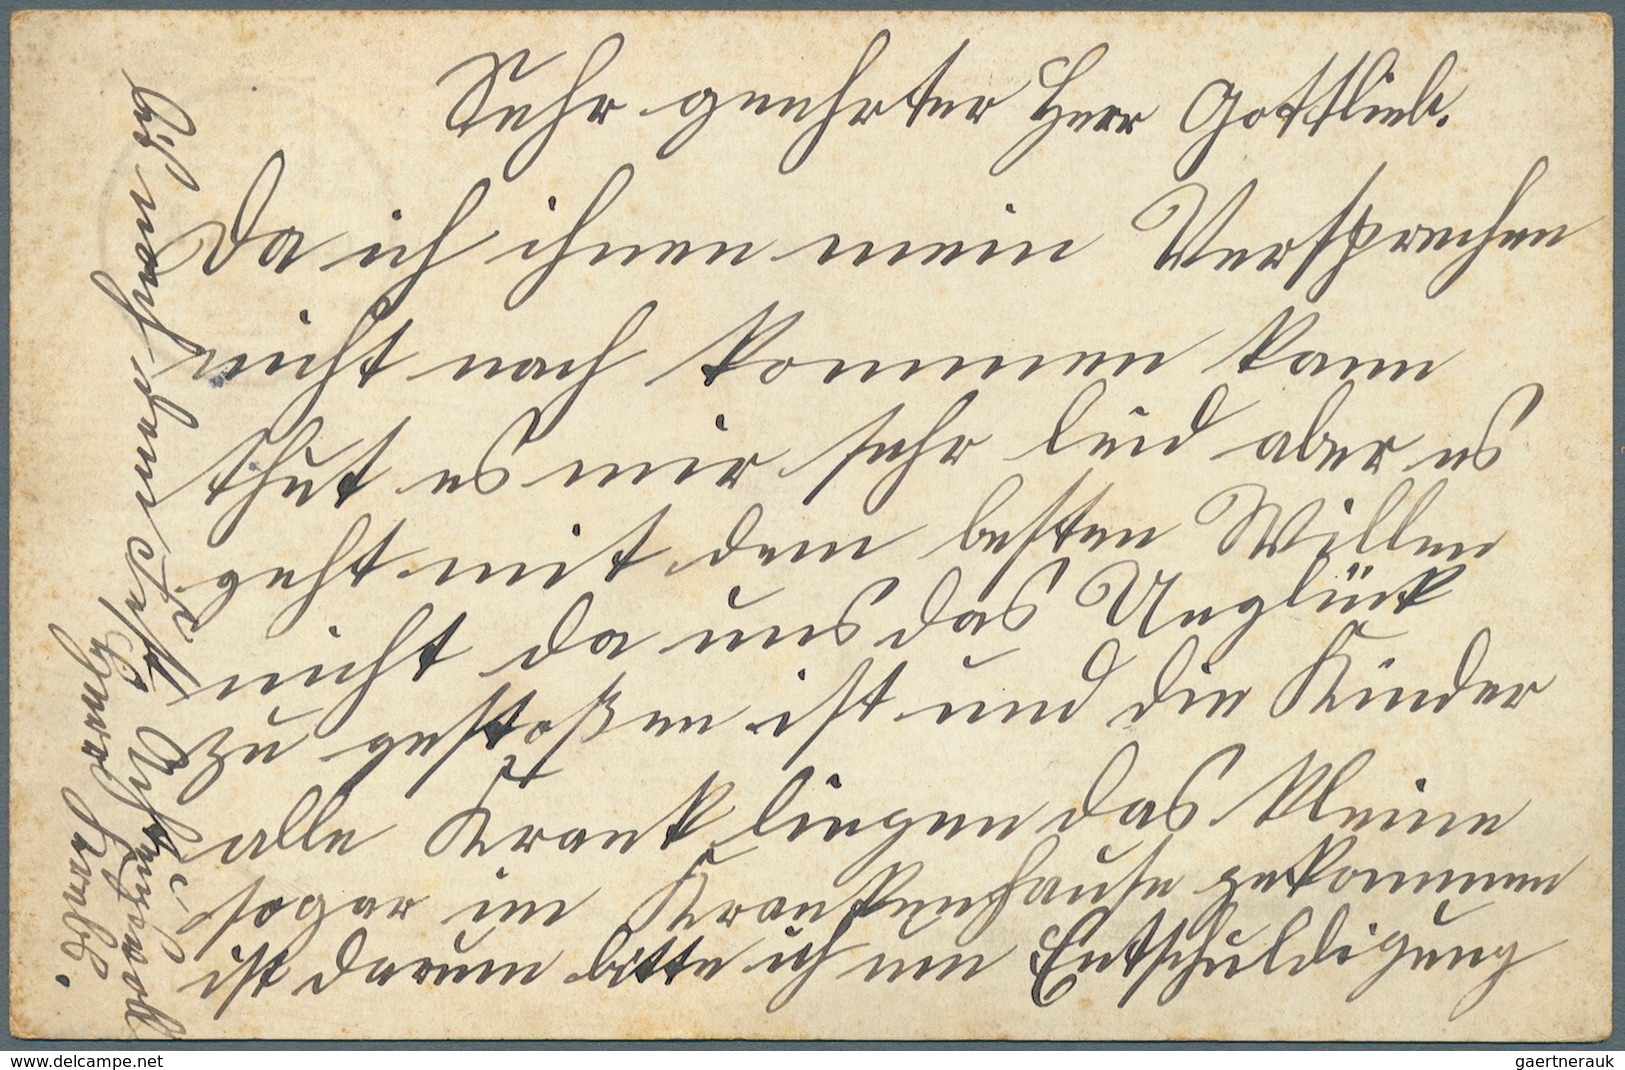 Sehr geehrter Herr Gottlieb.
Da ich ihnen mein Versprechen
nicht nach kommen kann
thut es mir sehr leid aber es
geht mit dem besten Willen
nicht da uns das Unglück
zu gestoßen ist und die Kinder
alle Krank liegen das kleine
sogar im Krankenhause gekommen
ist darum bitte ich um Entschuldigung
Hochachtungsvoll
delcampe.net
gaertnerauk